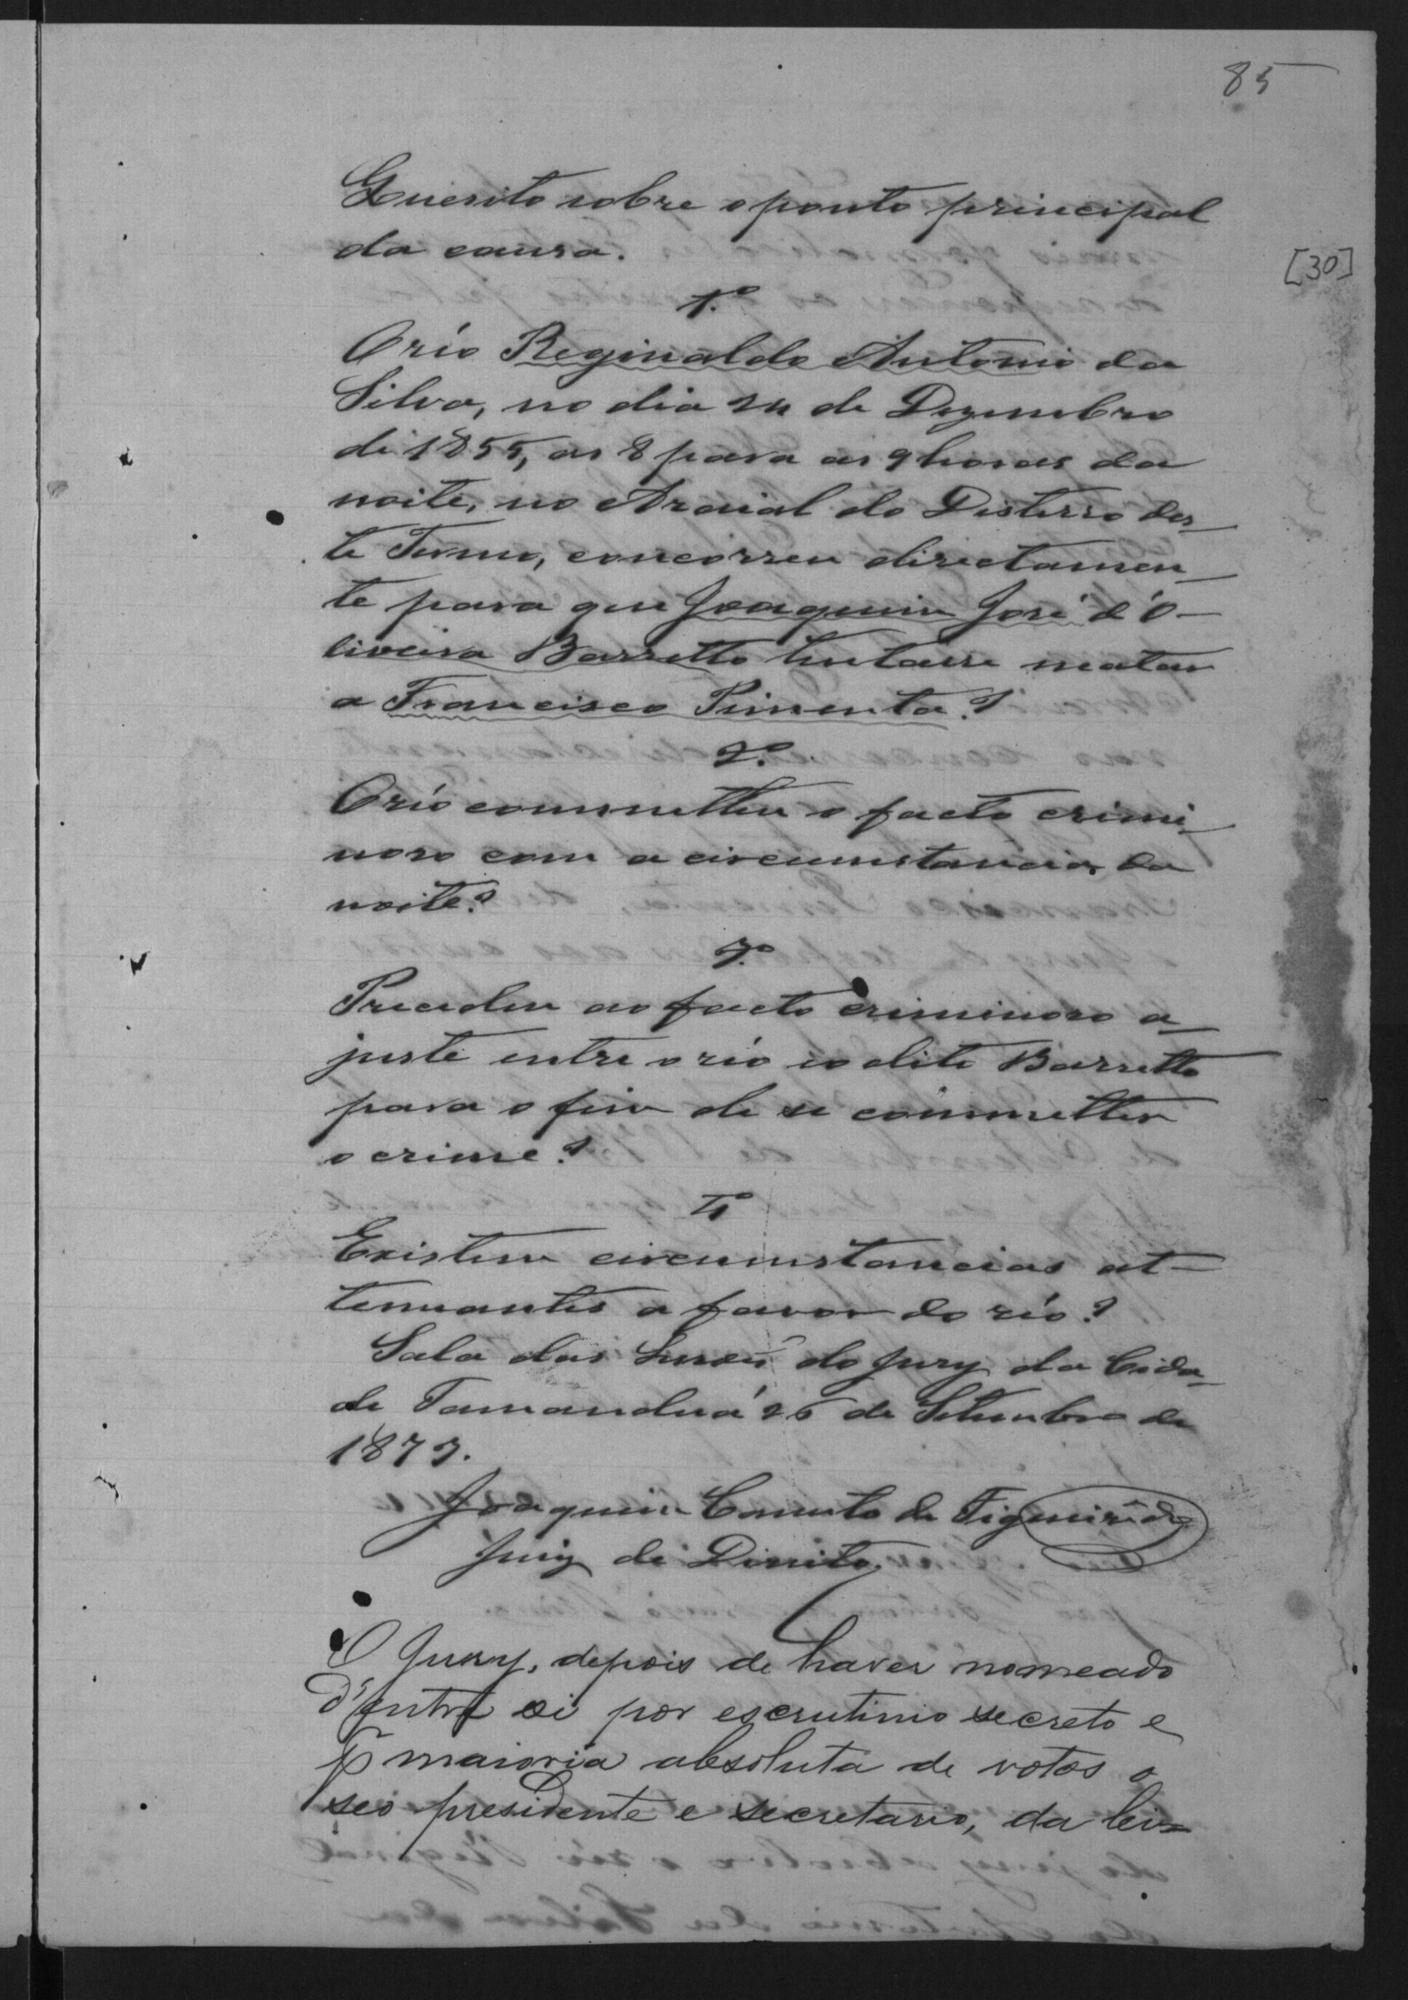 85
Quesito sobre o ponto principal
da causa.
[30]
1.º
O réo Reginaldo Antonio da
Silva, no dia 24 de Dezembro
de 1855, as 8 para as 9 horas da
noite, no Arraial do Desterro des-
te Termo, concorreu directamen-
te para que Joaquim José d'O-
liveira Barretto tentasse matar
a Francisco Pimenta?
2.º
O réo commetteu o facto crimi-
noso com a circumstancia da
noite?
3.º
Precedeu ao facto criminoso a-
juste entre o réo e o dito Barretto
para o fim de se commetter
o crime?
4º
Existem circumstancias at-
tenuantes a favor do réo?
Sala das Sessões do Jury da Cida-
de Tamanduá 26 de Setembro de
1873.
Joaquim Canuto de Figueirêdo
Juiz de Direito.
O Jury, depois de haver nomeado
d'entre si por escrutinio secreto e
p maioria absoluta de votos o
seo presidente e secretario, da lei=